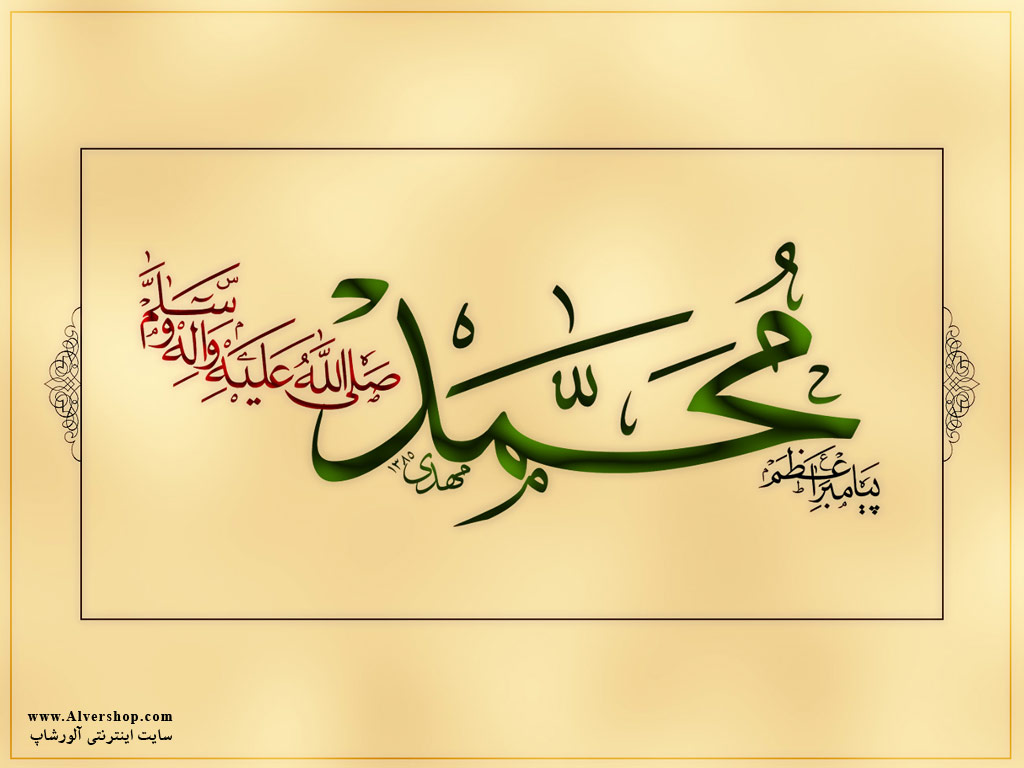 پیامبر اعظم
محمد
صلی الله علیه واله وسلم
مهدی ۱۳۸۵
www.Alvershop.com
سایت اینترنتی آلورشاپ